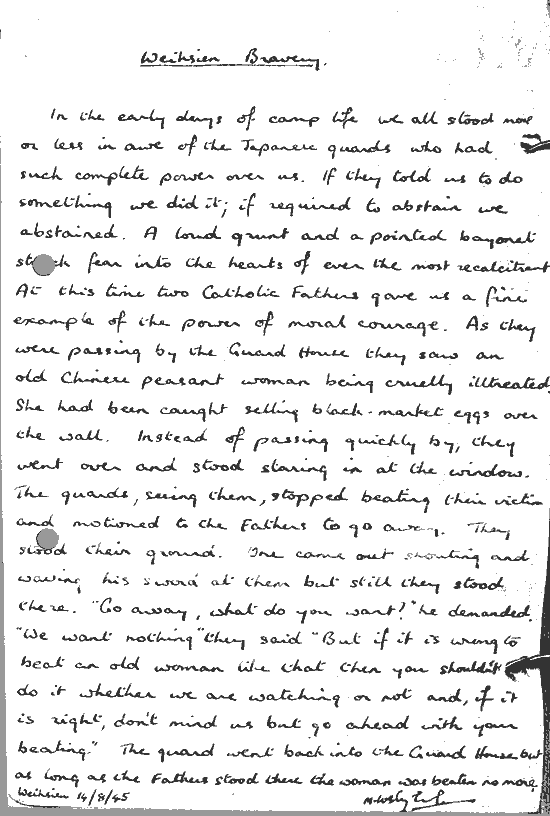 Weihsien Bravery.
In the early days of camp life we all stood more
or less in awe of the Japanese guards who had
such complete power over us. If they told us to do
something we did it; if required to abstain we
abstained. A loud grunt and a pointed bayonet
fear into the hearts of even the most recalcitrant
At this time two Catholic Fathers gave us a fine
example of the power of moral courage. As they
were passing by the Guard House they saw an
old Chinese peasant woman being cruelly illtreated.
She had been caught selling black-market eggs over
the wall. Instead of passing quickly by, they
went over and stood staring in at the window.
The guards, seeing them, stopped beating their victim
and motioned to the Fathers to go away. They
stood their ground. One came out shouting and
waving his sword at them but still they stood
there. "Go away, what do you want?" he demanded.
"We want nothing" they said "But if it is wrong to
beat an old woman like that then you shouldn't
do it whether we are watching or not and, if it
is right, don't mind us but go ahead with your
beating." The guard went back into the Guard House but
as long as the Fathers stood there the woman was beaten no more.
Weihsien 14/8/45